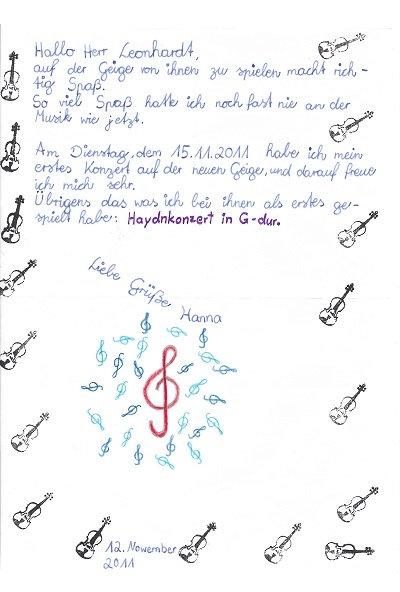 Hallo Herr Leonhardt,
auf der Geige von ihnen zu spielen macht rich-
tig Spaß.
So viel Spaß hatte ich noch fast nie an der
Musik wie jetzt.
Am Dienstag, dem 15.11.2011 habe ich mein
erstes Konzert auf der neuen Geige, und darauf freue
ich mich sehr.
Übrigens das was ich bei ihnen als erstes ge-
spielt habe: Haydnkonzert in G-dur.
Liebe Grüße Hanna
12. November
2011